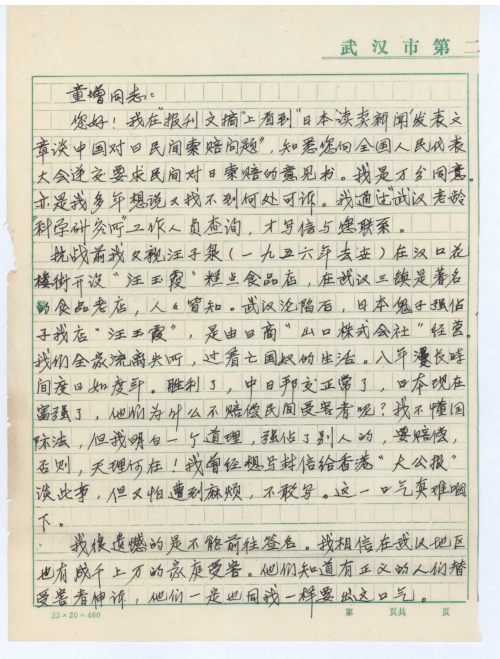 武汉市第二
童增同志：
您好！我在"报刊文摘"上看到"日本读卖新闻发表文
章谈中国对日民间索赔问题"，知悉您向全国人民代表
大会递交要求民间对日索赔的意见书。我是万分同意，
亦是我多年想说又找不到何处可诉。我通过"武汉老龄
科学研究所"工作人员查询，才写信与您联系。
抗战前我父亲汪子泉（一九五六年去世）在汉口花
楼街开设"汪玉霞"糕点食品店，在武汉三镇是著名
的食品老店，人人皆知。武汉沦陷后，日本鬼子强佔
了我店"汪玉霞"，是由日商"山口株式会社"经营。
我们全家流离失所，过着亡国奴的生活。八年漫长时
间度日如度年。胜利了，中日邦交正常了，日本现在
富强了，他们为什么不赔偿民间受害者呢？我不懂国
际法，但我明白一个道理，强佔了别人的，要赔偿，
否则，天理何在！我曾经想写封信给香港"大公报"
谈此事，但又怕遭到麻烦，不敢写。这一口气真难咽
下。
我很遗憾的是不能前往签名。我相信在武汉地区
也有成千上万的家庭受害。他们知道有正义的人们替
受害者伸诉，他们一定也同我一样要出这口气。
23×20=460
第 页共 页